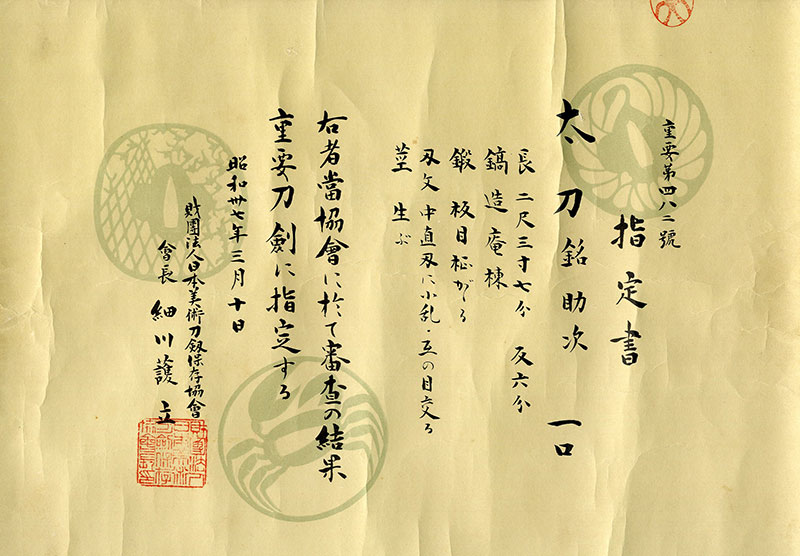 重要第四八二號
指定書
太刀 銘 助次 一口
長 二尺三寸七分 反 六分
鎬造庵棟
鍛 板目柾がる
刃文 中直刃に小乱・互の目交る
茎 生ぶ
右者當協會に於て審査の結果
重要刀剣に指定する
昭和卅七年三月十日
財團法人日本美術刀剱保存協會
會長 細川護立